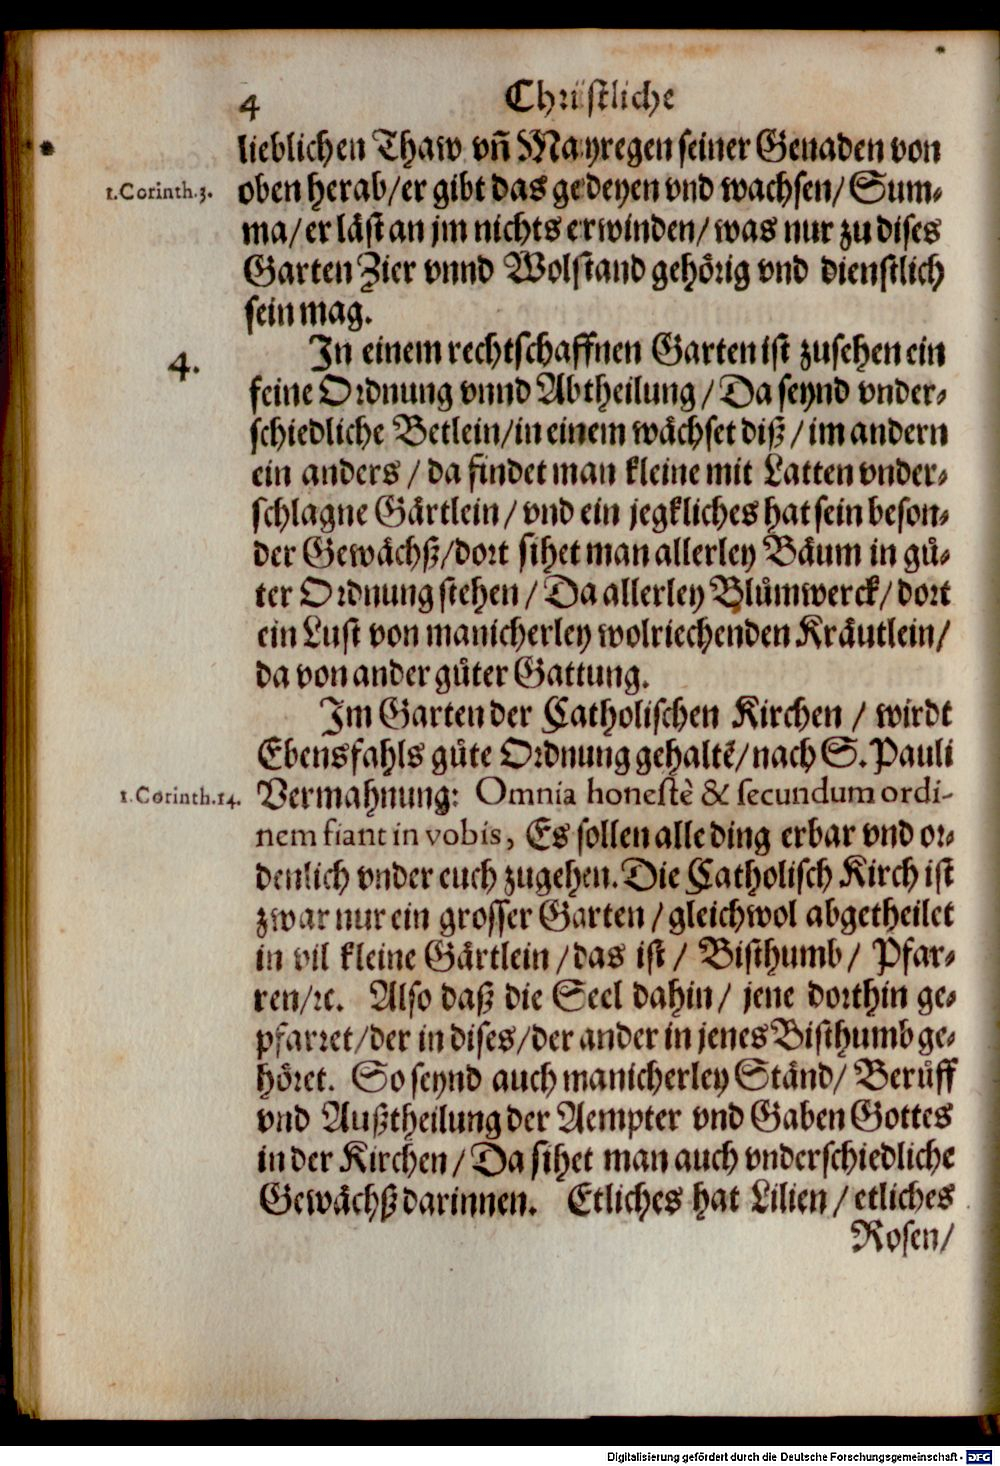 4 Christliche
lieblichen Thaw vn̄ Mayregen seiner Genaden von
1.Corinth.3. oben herab/er gibt das gedeyen vnd wachsen/ Sum⸗
ma/ er läst an jm nichts erwinden/ was nur zu dises
Garten Zier vnnd Wolstand gehörig vnd dienstlich
sein mag.
4. In einem rechtschaffnen Garten ist zusehen ein
feine Ordnung vnnd Abtheilung / Da seynd vnder⸗
schiedliche Betlein/in einem wächset diß / im andern
ein anders / da findet man kleine mit Latten vnder⸗
schlagne Gärtlein / vnd ein jegkliches hat sein beson⸗
der Gewächß/dort sihet man allerley Bäum in gů⸗
ter Ordnung stehen / Da allerley Blůmwerck/ dort
ein Lust von manicherley wolriechenden Kräutlein/
da von ander gůter Gattung.
Im Garten der Catholischen Kirchen / wirdt
Ebensfahls gůte Ordnung gehaltē/ nach S. Pauli
1.Corinth.14. Vermahnung: Omnia honestè & secundum ordi-
nem fiant in vobis, Es sollen alle ding erbar vnd or⸗
denlich vnder euch zugehen. Die Catholisch Kirch ist
zwar nur ein grosser Garten / gleichwol abgetheilet
in vil kleine Gärtlein / das ist / Bisthumb / Pfar⸗
ren/ꝛc. Also daß die Seel dahin / jene dorthin ge⸗
pfarret/der in dises/der ander in jenes Bisthumb ge⸗
höret. So seynd auch manicherley Ständ/ Berůff
vnd Außtheilung der Aempter vnd Gaben Gottes
in der Kirchen / Da sihet man auch vnderschiedliche
Gewächß darinnen. Etliches hat Lilien / etliches
Rosen/
Digitalisierung gefördert durch die Deutsche Forschungsgemeinschaft - DFG